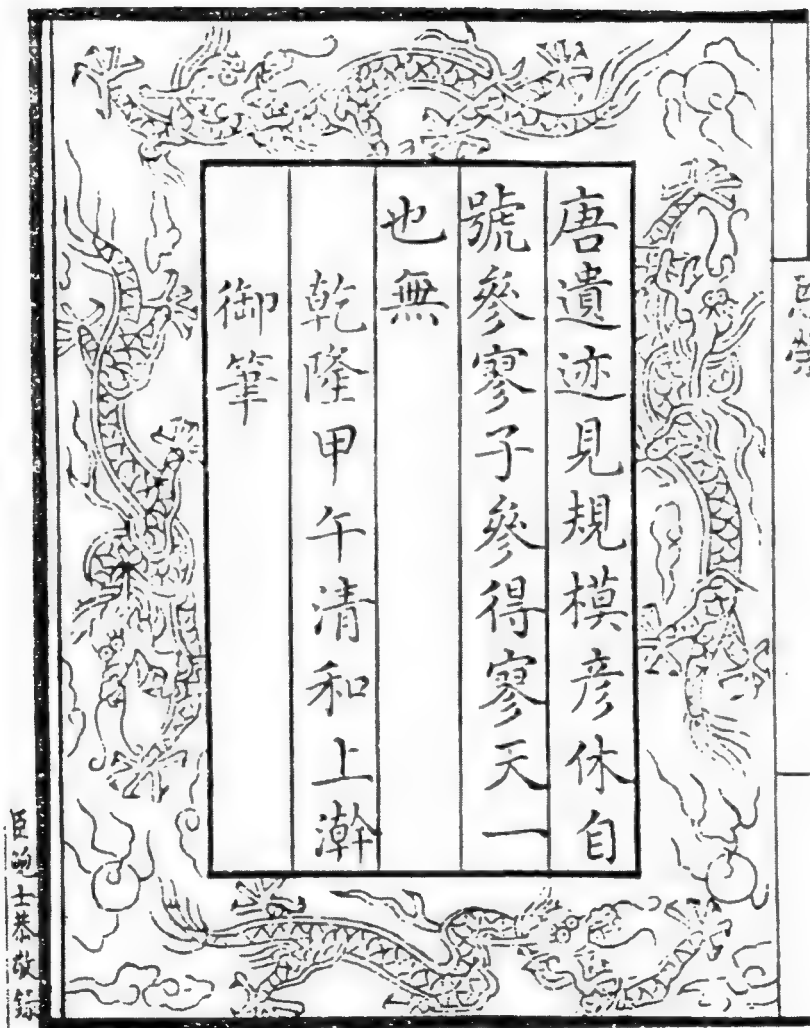 唐遺迹見規模彦休自
號參寥子參得寥天一
也無
乾隆甲午清和上澣
御筆
臣鮑士恭敬錄